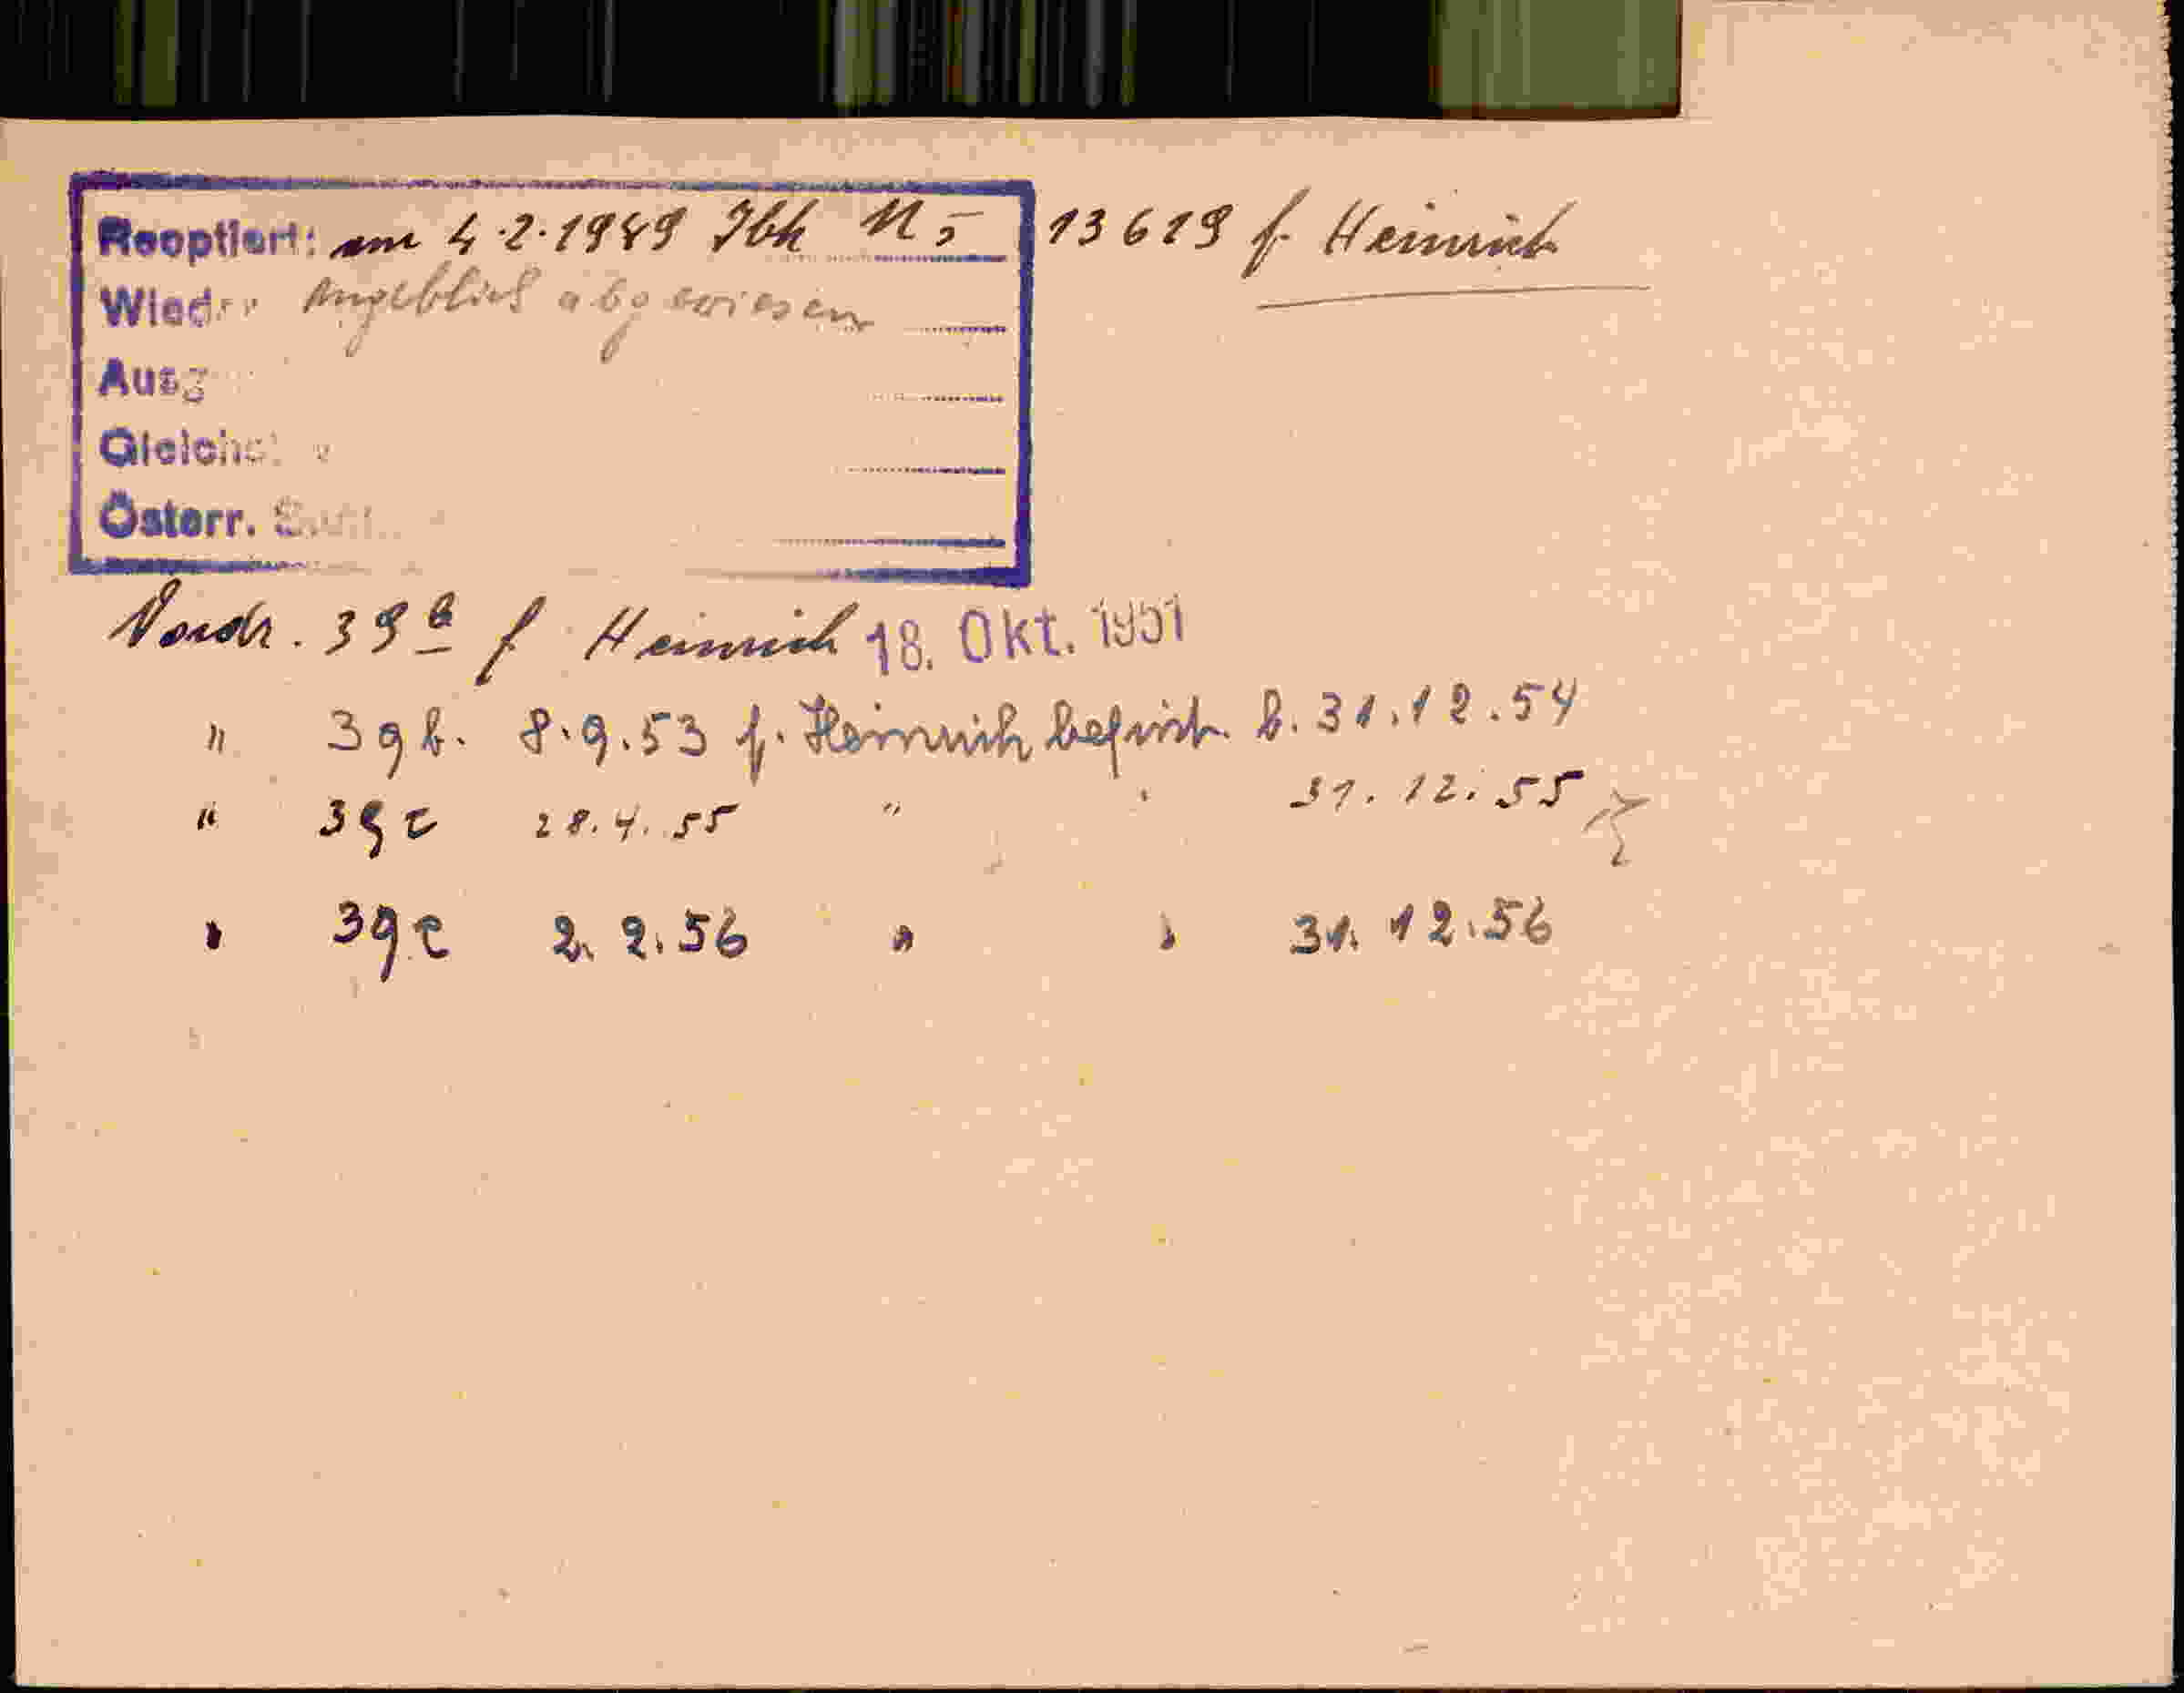 Reoptiert: am 4.2.1949 Ibk Nr 13619 f. Heinrich
Wied angeblich abgewiesen
Ausg
Gleichst
Österr.
Vordr. 39b f Heinrich 18. Okt. 1951
" 39b. 8.9.53 f. Heinrich befrist. b. 31.12.54
" 39c 28.4.55 " " 31.12.55
" 39c 2.2.56 " " 31.12.56